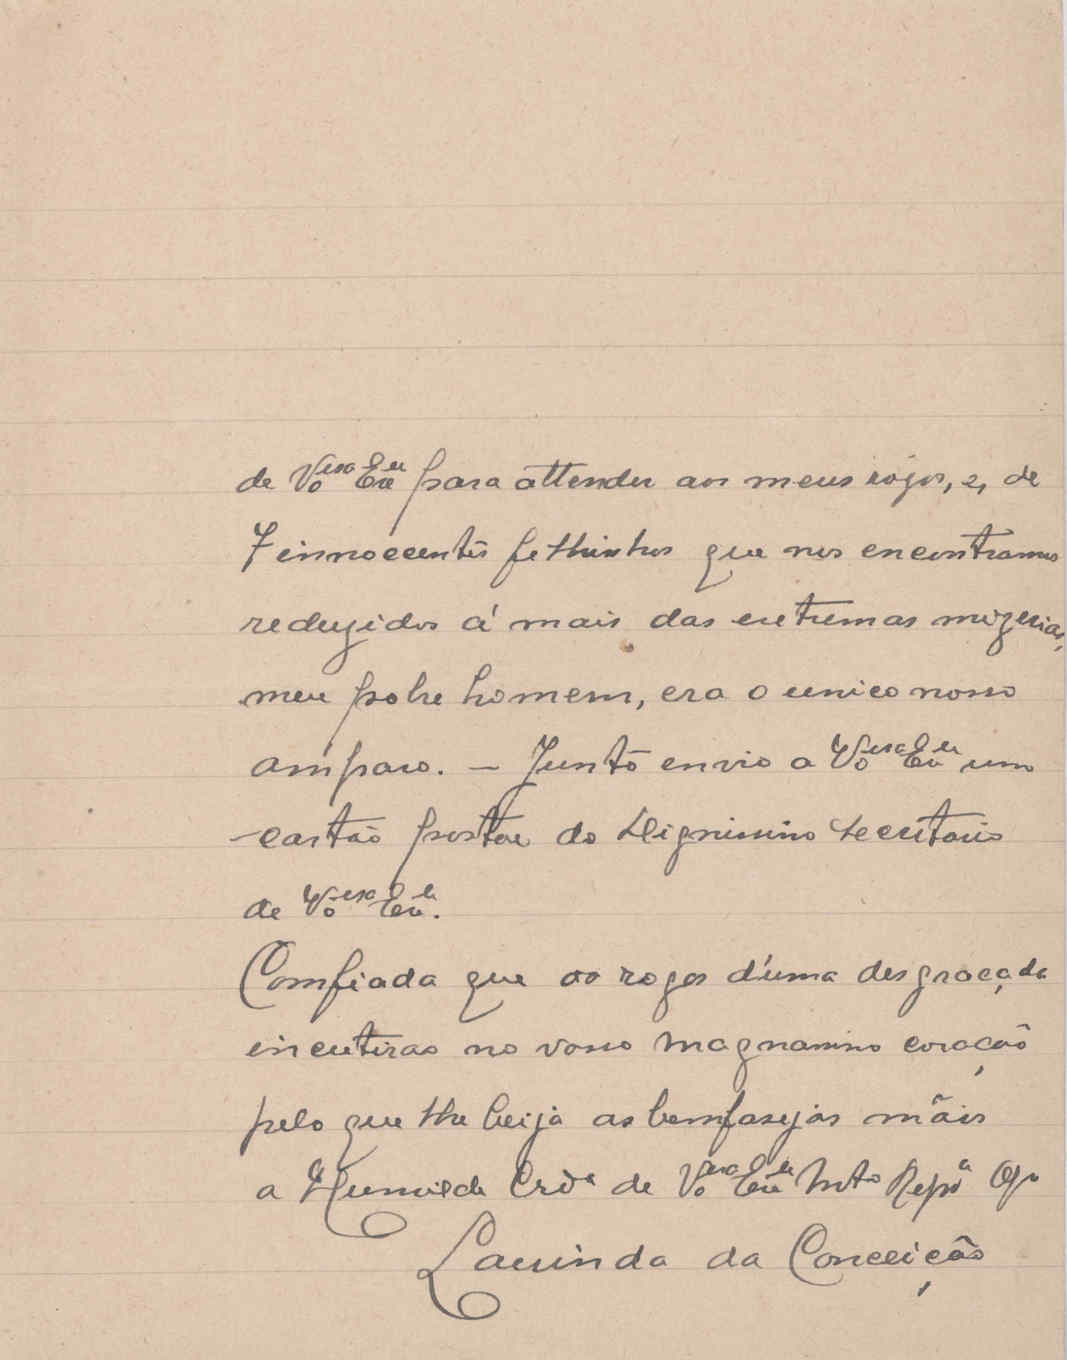 de Vossa Exª para attender aos meus rogos, e, de
7 innocentes filhinhos que nos encontramos
reduzidos á mais das extremas mizerias,
meu pobre homem, era o unico nosso
amparo. – Junto envio a Vossa Exª um
cartão postal do Dignissimo Secretario
de Vossa Exª.
Comfiada que os rogos d'uma desgraçada
incutirão no vosso magnanimo coração
pelo que lhe beija as bemfasejas mãis
a Humilde Crdª de Vossa Exª Mto
Laurinda da Conceição